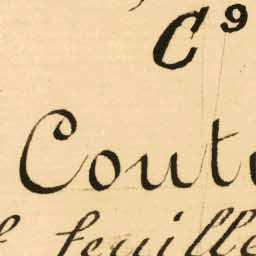 C⁹
Conte
f feuille